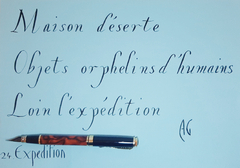 Maison déserte
Objets orphelins d'humains
Loin l'expédition
AG
24 Expedition